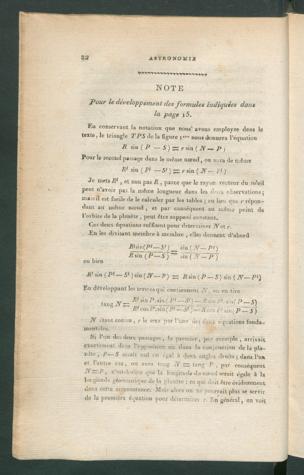 22 ASTRONOMIE
NOTE
Pour le développement des formules indiquées dans
la page 15.
En conservant la notation que nous avons employée dans le
texte, le triangle TPS de la figure 1ere nous donnera l'équation
R sin (P — S) = r sin (N — P)
Pour le second passage dans le même nœud, on aura de même
R¹ sin (P¹ — S¹) = r sin (N — P¹)
Je mets R¹, et non pas R, parce que le rayon vecteur du soleil
peut n'avoir pas la même longueur dans les deux observations;
mais il est facile de le calculer par les tables; au lieu que r répon-
dant au même nœud, et par conséquent au même point de
l'orbite de la planète, peut être supposé constant.
Ces deux équations suffisent pour déterminer N et r.
En les divisant membre à membre, elles donnent d'abord
R¹ sin (P¹ — S¹) / R sin (P — S) = sin (N — P¹) / sin (N — P)
ou bien
R¹ sin (P¹ — S¹) sin (N — P) = R sin (P — S) sin (N — P¹)
En développant les termes qui contiennent N, on en tire
tang N =
N étant connu, r le sera par l'une des deux équations fonda-
mentales.
Si l'un des deux passages, le premier, par exemple, arrivait
exactement dans l'opposition ou dans la conjonction de la pla-
nète, P — S serait nul ou égal à deux angles droits; dans l'un
et l'autre cas, on aura tang N = tang P, par conséquent
N = P, c'est-à-dire que la longitude du nœud serait égale à la
longitude géocentrique de la planète; ce qui doit être évidemment
dans cette supposition. Mais alors on ne pourrait plus se servir
de la première équation pour déterminer r. En général, on voit